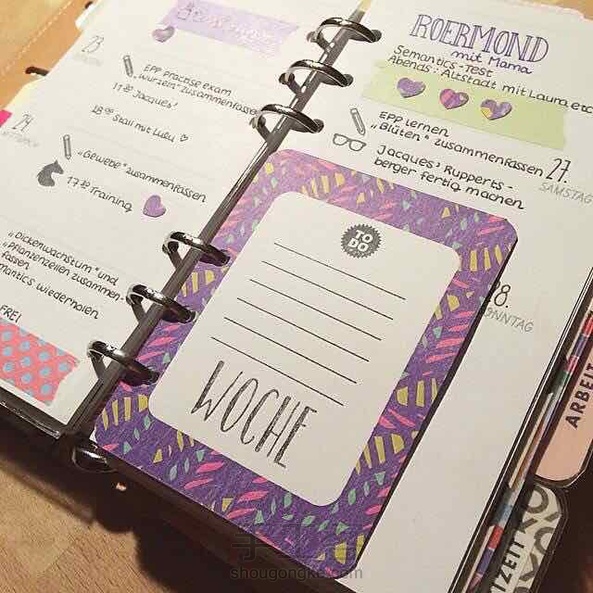 23
EPP practise exam
„Wurzeln" zusammenfassen
Jacques'
Stall mit Lulu
24
„Gewebe" zusammenfassen
Training
„Dickenwachstum" und
„Pflanzenzellen zusammen-
fassen
wiederholen
FREI
ROERMOND
mit Mama
Semantics-Test
Abends: Altstadt mit Laura etc
EPP lernen
„Blüten" zusammenfassen
Jacques' Rupperts-
berger fertig machen
27.
SAMSTAG
28.
SONNTAG
TO
DO
WOCHE
ARBEIT
shougongke.com